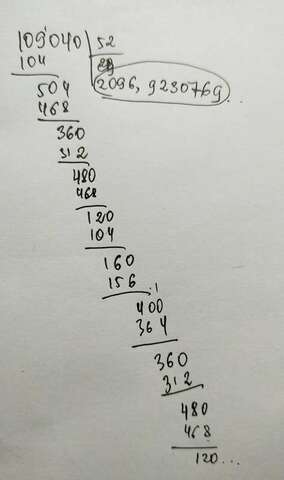 109040 52
104 2096,9230769...
504
468
360
312
480
468
120
104
160
156
400
364
360
312
480
468
120...